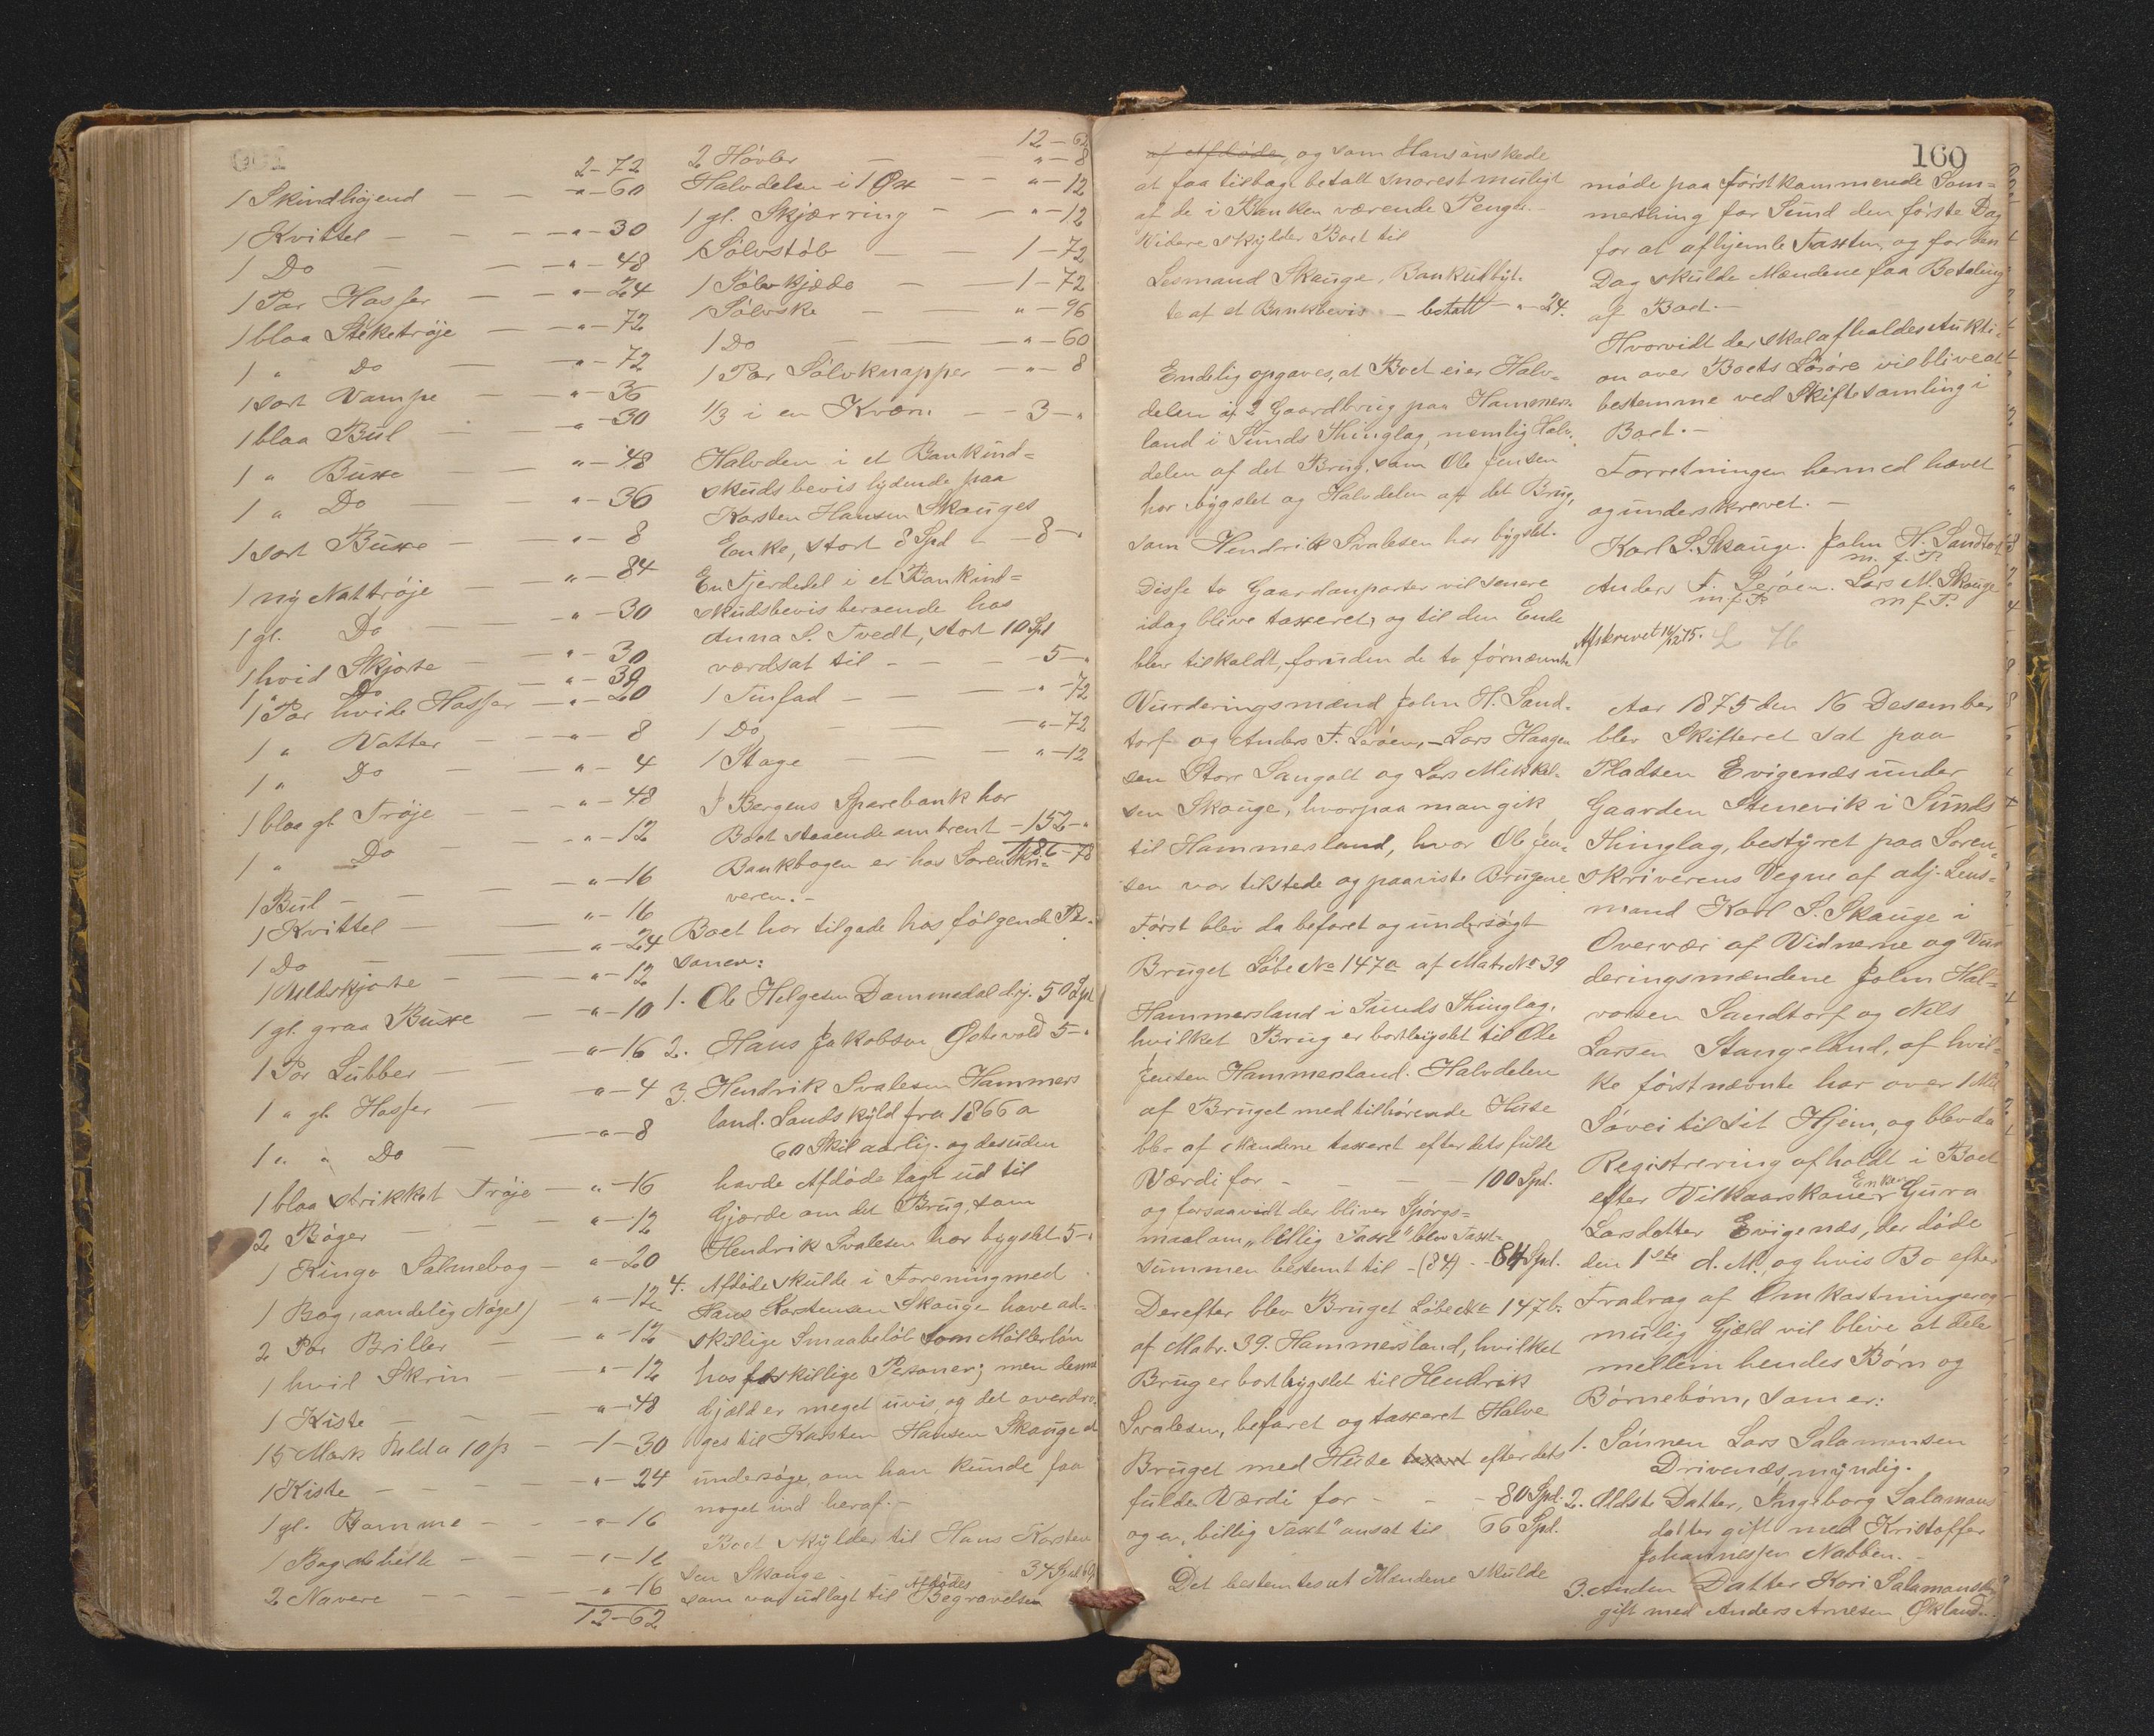 2-72
1 Skindhøjend — — „-60
1 Kvittel — — „-30
1 Do — — „-48
1 Par Hosser — — „-24
1 blaa Steketrøje — „-72
1 „ Do — „-72
1 sort Vampe — „-36
1 blaa Bul — „-30
1 „ Buxe — „-48
1 „ Do — „-36
1 sort Buxe — „-8
1 ny Nattrøje — „-84
1 gl. Do — „-30
1 hvid Skjorte — „-30
1 „ Do — „-30
1 Par hvide Hosser — „-20
1 „ Votter — „-8
1 „ Do — „-4
1 blaa gl. Trøje — „-48
1 „ Do — „-12
1 Bul — — „-16
1 Kvittel — „-16
1 Do — „-24
1 Uldskjorte — „-12
1 gl. graa Buxe — „-10
1 Par Lubber — „-16
1 „ gl. Hosser — „-4
1 „ „ Do — „-8
1 blaa strikket Trøje — „-16
2 Bøger — — „-12
1 Kingo Salmebog — „-20
1 Bog, aandelig Nøgel) „-12
2 Par Briller — „-12
1 hvid Skrin — „-12
1 Kiste — — „-48
15 Mark Uld a 10 ß — 1-30
1 Kiste — — — „-24
1 gl. Tomme — — „-16
1 Bogahille — — „-16
2 Navere — — — „-16
12-62
12-62
2 Høvler — — „-8
Halvdelen i 1 Øx — — „-12
1 gl. Skjærring — — „-12
1 Sølvstøb — 1-72
1 Sølvkjæde — 1-72
1 Sølvske — — „-96
1 Do — — „-60
1 Par Sølvknapper — „-8
1/3 i en Kværn — — 3-„
Halvden i et Bankind=
skudsbevis lydende paa
Karsten Hansen Skouges
Enke, stort 8 Spd — 8-„
En Fjerdedel i et Bankind=
skudsbevis beroende hos
Anna S. Tvedt, stort 10 Spd
værdsat til — — — 5-„
1 Tinfad — — — „-72
1 Do — — — „-72
1 Stage — — — „-12
I Bergens Sparebank har
Boet staaende omtrent — 152-„
186-78
Bankbogen er hos Sorenskri=
veren. —
Boet har tilgode hos følgende Per-
soner:
1. Ole Helgesen Dammedal drj. 50 Spd
2. Hans Jakobsen Østevold 5-„
3. Hendrik Svalesen Hammers
land. Landskyld fra 1866 a
60 Skil aarlig. og desuden
havde Afdøde lagt ud til
Gjærde om det Brug, som
Hendrik Svalesen har bygslet 5-„
4. Afdøde skulde i Forening med
Hans Karstensen Skouge have ad-
skillige Smaabeløb som Møllerløn
hos forskillige Personer; men denne
Gjæld er meget uvis, og det overdra-
ges til Karsten Hansen Skouge at
undersøge, om han kunde faa
noget ind heraf. —
Boet skylder til Hans Karsten
sen Skouge — 37 Spd
som var udlagt til Afdødes Begravelsen
160
af Afdøde, og som Hans ønskede
at faa tilbage betalt snarest muligt
af de i Banken værende Penge. —
Videre skylder Boet til
Lesmand Skouge, Bankudbyt-
te af et Bankbevis — betalt „-24.
Endelig opgaves, at Boet eier Halv-
delen i 2 Gaardbrug paa Hammers-
land i Sunds Thinglag, nemlig Halv-
delen af det Brug, som Ole Jensen
har bygslet og Halvdelen af det Brug,
som Hendrik Svalesen har bygslet.
Disse to Gaardanparter vil senere
idag blive taxeret, og til den Ende
blev tilkaldt, foruden de to førnævnte
Vurderingsmænd John H. Sand-
torf og Anders F. Lerøen, — Lars Haagen
sen Store Sangolt og Lars Mikkel-
sen Skouge, hvorpaa man gik
til Hammersland, hvor Ole Jen-
sen var tilstede og paaviste Brugene
Først blev da befaret og undersøgt
Bruget Løbe No 147a af Matr No 39
Hammersland i Sunds Thinglag,
hvilket Brug er bortbygslet til Ole
Jensen Hammersland. Halvdelen
af Bruget med tilhørende Huse
blev af Mændene taxeret efter dets fulde
Værdi for — — — 100 Spd.
og forsaavidt der bliver Spørgs=
maal om „billig Taxt" blev Taxt-
summen bestemt til — (84) — 84 Spd.
Derefter blev Bruget Løbe No 147b.
af Matr. 39. Hammersland, hvilket
Brug er bortbygslet til Hendrik
Svalesen, befaret og taxeret Halve
Bruget med Huse taxert efter dets
fulde Værdi for — — — 80 Spd.
og en „billig Taxt" ansat til 66 Spd.
Det bestemtes at Mændene skulde
møde paa førstkommende Som=
merthing for Sund den første Dag
for at afhjemle Taxten, og for den
Dag skulde Mændene faa Betaling
af Boet. —
Hvorvidt der skal afholdes Aukti-
on over Boets Løsøre vil blive at
bestemme ved Skiftesamling i
Boet. —
Forretningen hermed hævet
og underskrevet. —
Karl S. Skauge. John H. Sandtorf
m. f. P.
Anders F. Lerøen. Lars M. Skouge
m f P. m f. P.
Afskrevet 16/12 75. L 76
Aar 1875 den 16 Desember
blev Skifteret sat paa
Pladsen Evigenæs under
Gaarden Stenevik i Sunds
Thinglag, bestyret paa Soren-
skriverens Vegne af adj. Lens=
mand Karl S. Skauge i
Overvær af Vidnerne og Vur
deringsmændene John Hal=
vorsen Sandtorf og Nils
Larsen Stangeland, af hvil=
ke førstnævnte har over 1 Mil
Søvei til sit Hjem, og blev da
Registrering afholdt i Boet
efter Vilkaarskone Enken Gura
Larsdatter Evigenæs, der døde
den 1ste d. M., og hvis Bo efter
Fradrag af Omkostninger og
mulig Gjæld vil blive at dele
mellem hendes Børn og
Børnebørn, som er:
1. Sønnen Lars Salamonsen
Drivenæs, myndig.
2. Ældste Datter, Ingeborg Salamons
datter gift med Kristoffer
Johannessen Nabben. —
3. Anden Datter Kari Salamonsdtr
gift med Anders Arnesen Økland.